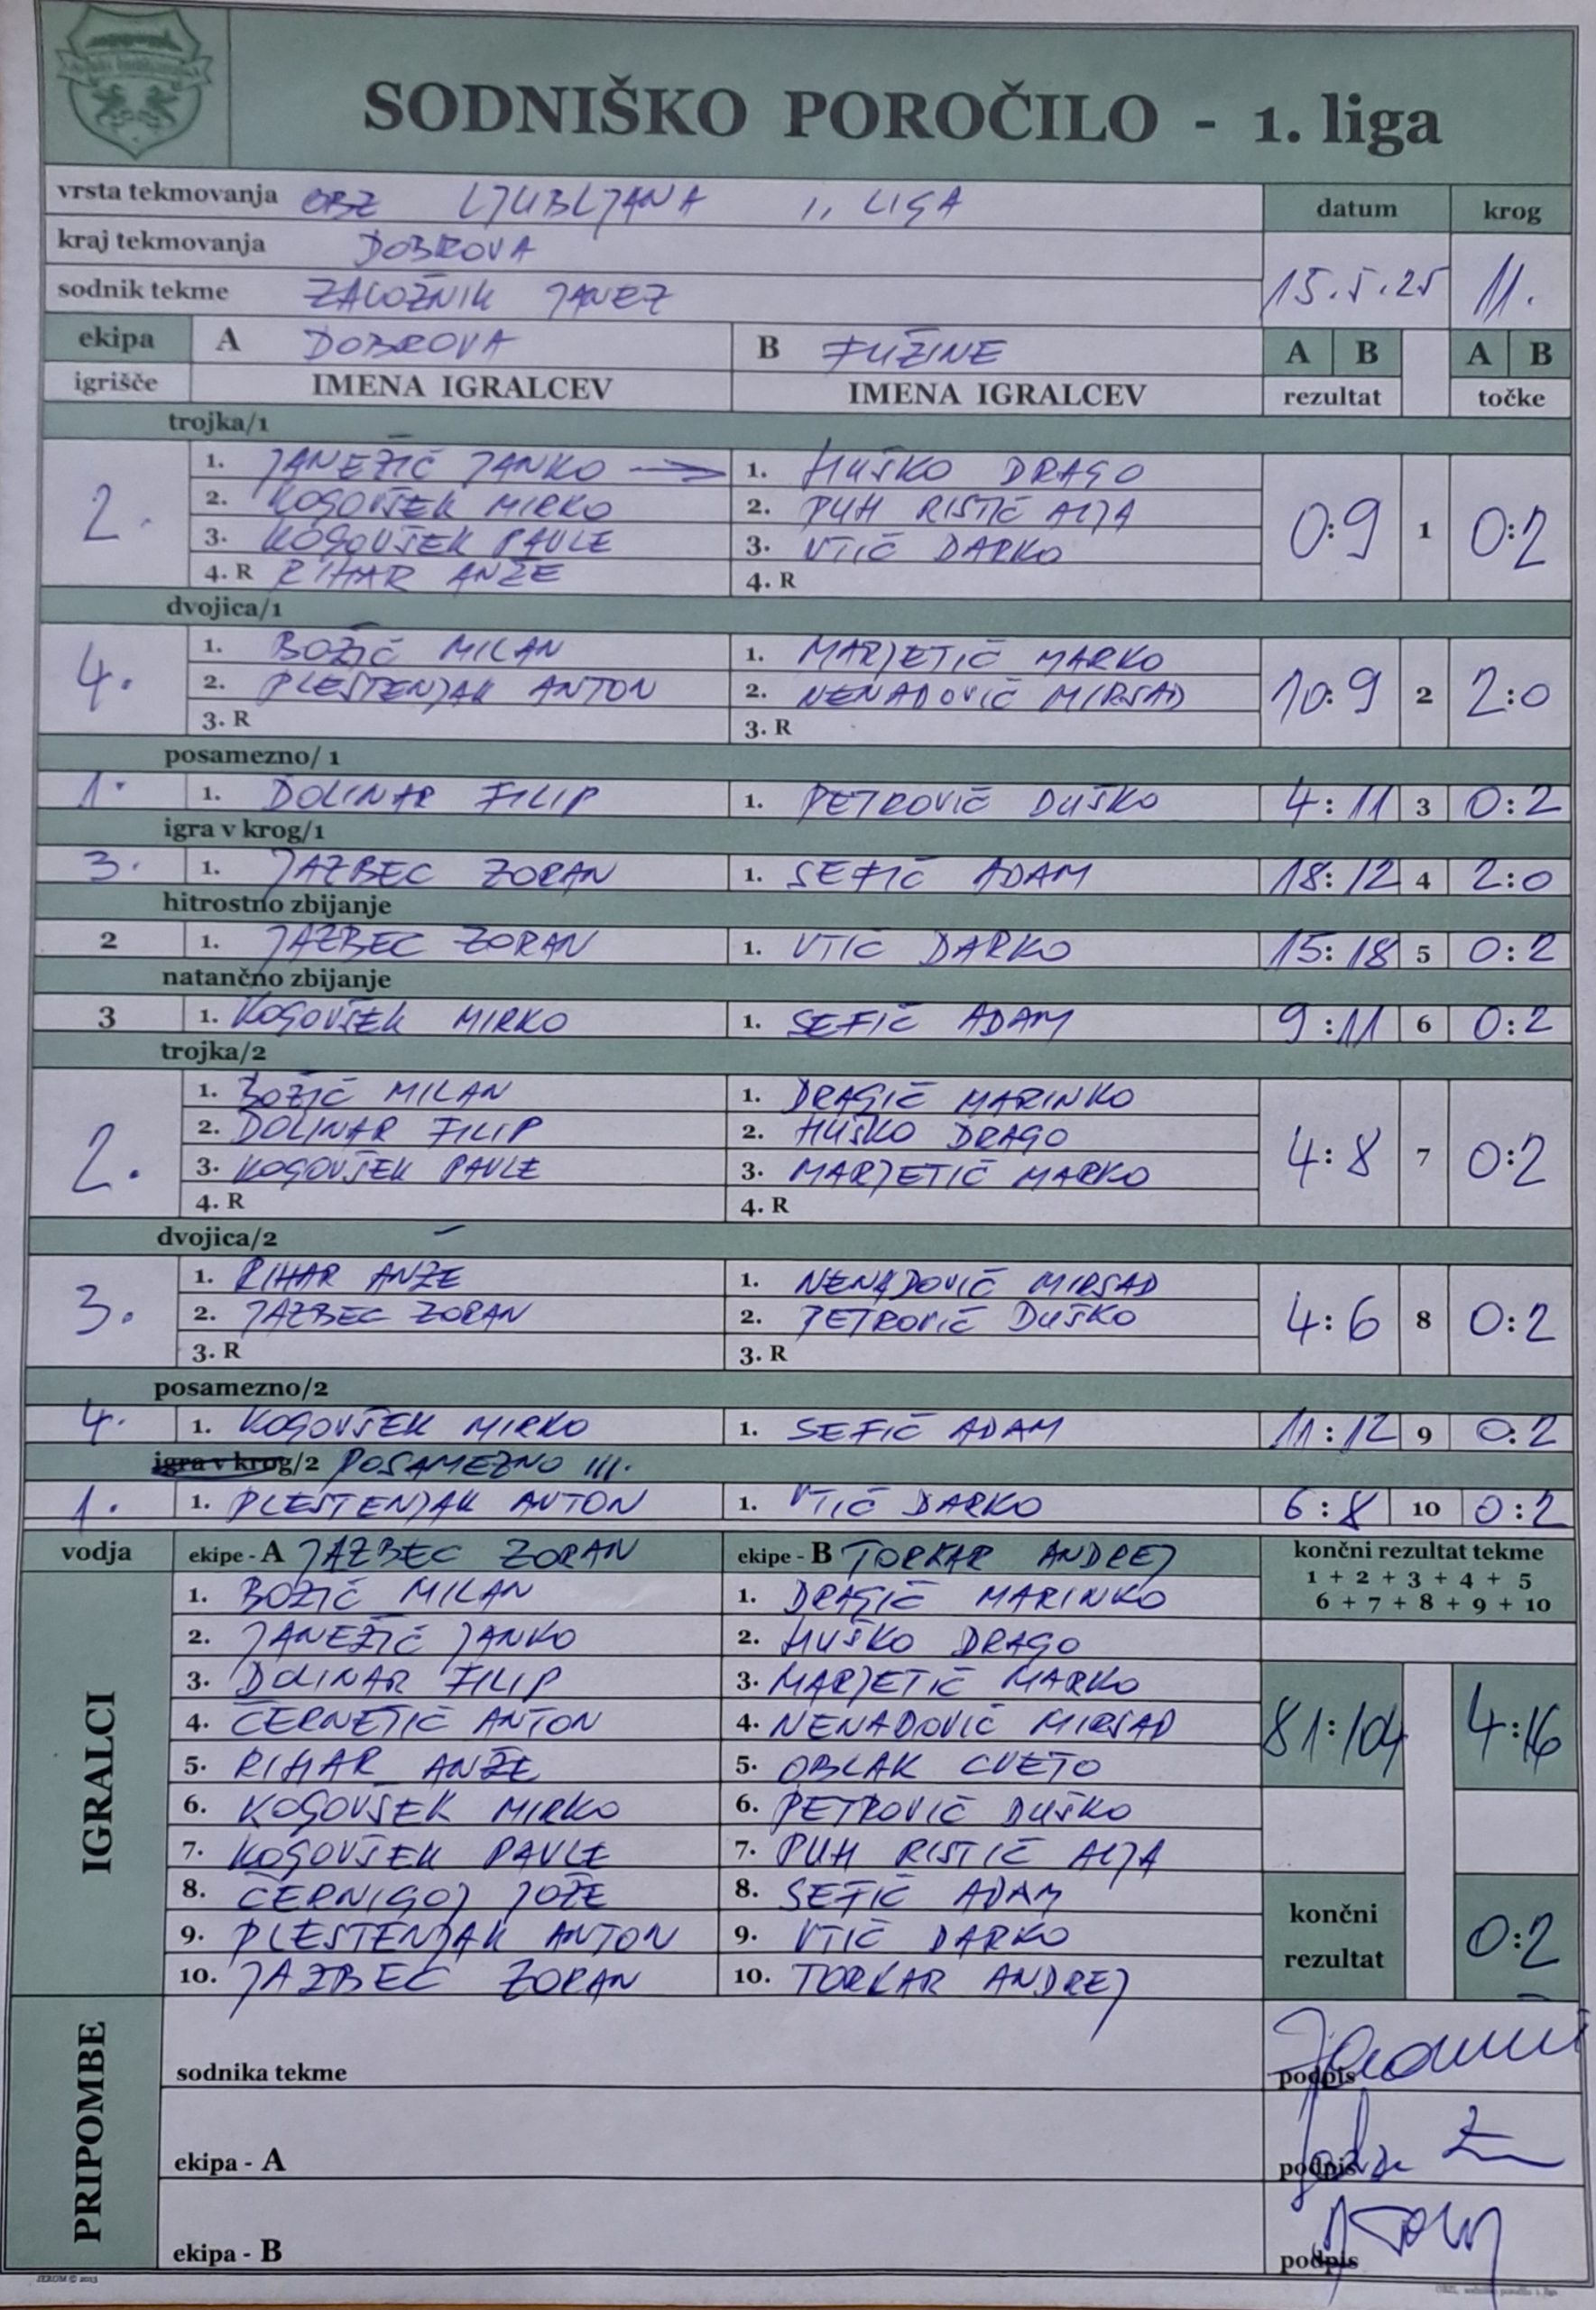 SODNIŠKO POROČILO - 1. liga
vrsta tekmovanja OBZ LJUBLJANA 1. LIGA datum krog
kraj tekmovanja DOBROVA
sodnik tekme ZALOŽNIK JANEZ 15.5.25 11.
ekipa A DOBROVA B FUŽINE A B A B
igrišče IMENA IGRALCEV IMENA IGRALCEV rezultat točke
trojka/1
1. JANEŽIČ JANKO → 1. HUŠKO DRAGO
2. 2. KOGOVŠEK MIRKO 2. PUH RISTIČ ALJA 0:9 1 0:2
3. KOGOVŠEK PAVLE 3. VTIČ DARKO
4. R RIHAR ANŽE 4. R
dvojica/1
1. BOŽIČ MILAN 1. MARJETIČ MARKO
4. 2. PLESTENJAK ANTON 2. NENADOVIČ MIRSAD 10:9 2 2:0
3. R 3. R
posamezno/ 1
1. 1. DOLINAR FILIP 1. PETROVIČ DUŠKO 4:11 3 0:2
igra v krog/1
3. 1. JAZBEC ZORAN 1. SEFIČ ADAM 18:12 4 2:0
hitrostno zbijanje
2 1. JAZBEC ZORAN 1. VTIČ DARKO 15:18 5 0:2
natančno zbijanje
3 1. KOGOVŠEK MIRKO 1. SEFIČ ADAM 9:11 6 0:2
trojka/2
1. BOŽIČ MILAN 1. DRAGIČ MARINKO
2. 2. DOLINAR FILIP 2. HUŠKO DRAGO 4:8 7 0:2
3. KOGOVŠEK PAVLE 3. MARJETIČ MARKO
4. R 4. R
dvojica/2
1. RIHAR ANŽE 1. NENADOVIČ MIRSAD
3. 2. JAZBEC ZORAN 2. PETROVIČ DUŠKO 4:6 8 0:2
3. R 3. R
posamezno/2
4. 1. KOGOVŠEK MIRKO 1. SEFIČ ADAM 11:12 9 0:2
igra v krog/2 POSAMEZNO III.
1. 1. PLESTENJAK ANTON 1. VTIČ DARKO 6:8 10 0:2
vodja ekipe - A JAZBEC ZORAN ekipe - B TORKAR ANDREJ končni rezultat tekme
1 + 2 + 3 + 4 + 5
6 + 7 + 8 + 9 + 10
IGRALCI
1. BOŽIČ MILAN 1. DRAGIČ MARINKO
2. JANEŽIČ JANKO 2. HUŠKO DRAGO
3. DOLINAR FILIP 3. MARJETIČ MARKO
4. ČERNETIČ ANTON 4. NENADOVIČ MIRSAD 81:104 4:16
5. RIHAR ANŽE 5. OBLAK CVETO
6. KOGOVŠEK MIRKO 6. PETROVIČ DUŠKO
7. KOGOVŠEK PAVLE 7. PUH RISTIČ ALJA
8. ČERNIGOJ JOŽE 8. SEFIČ ADAM
9. PLESTENJAK ANTON 9. VTIČ DARKO končni rezultat 0:2
10. JAZBEC ZORAN 10. TORKAR ANDREJ
PRIPOMBE
sodnika tekme podpis
ekipa - A podpis
ekipa - B podpis